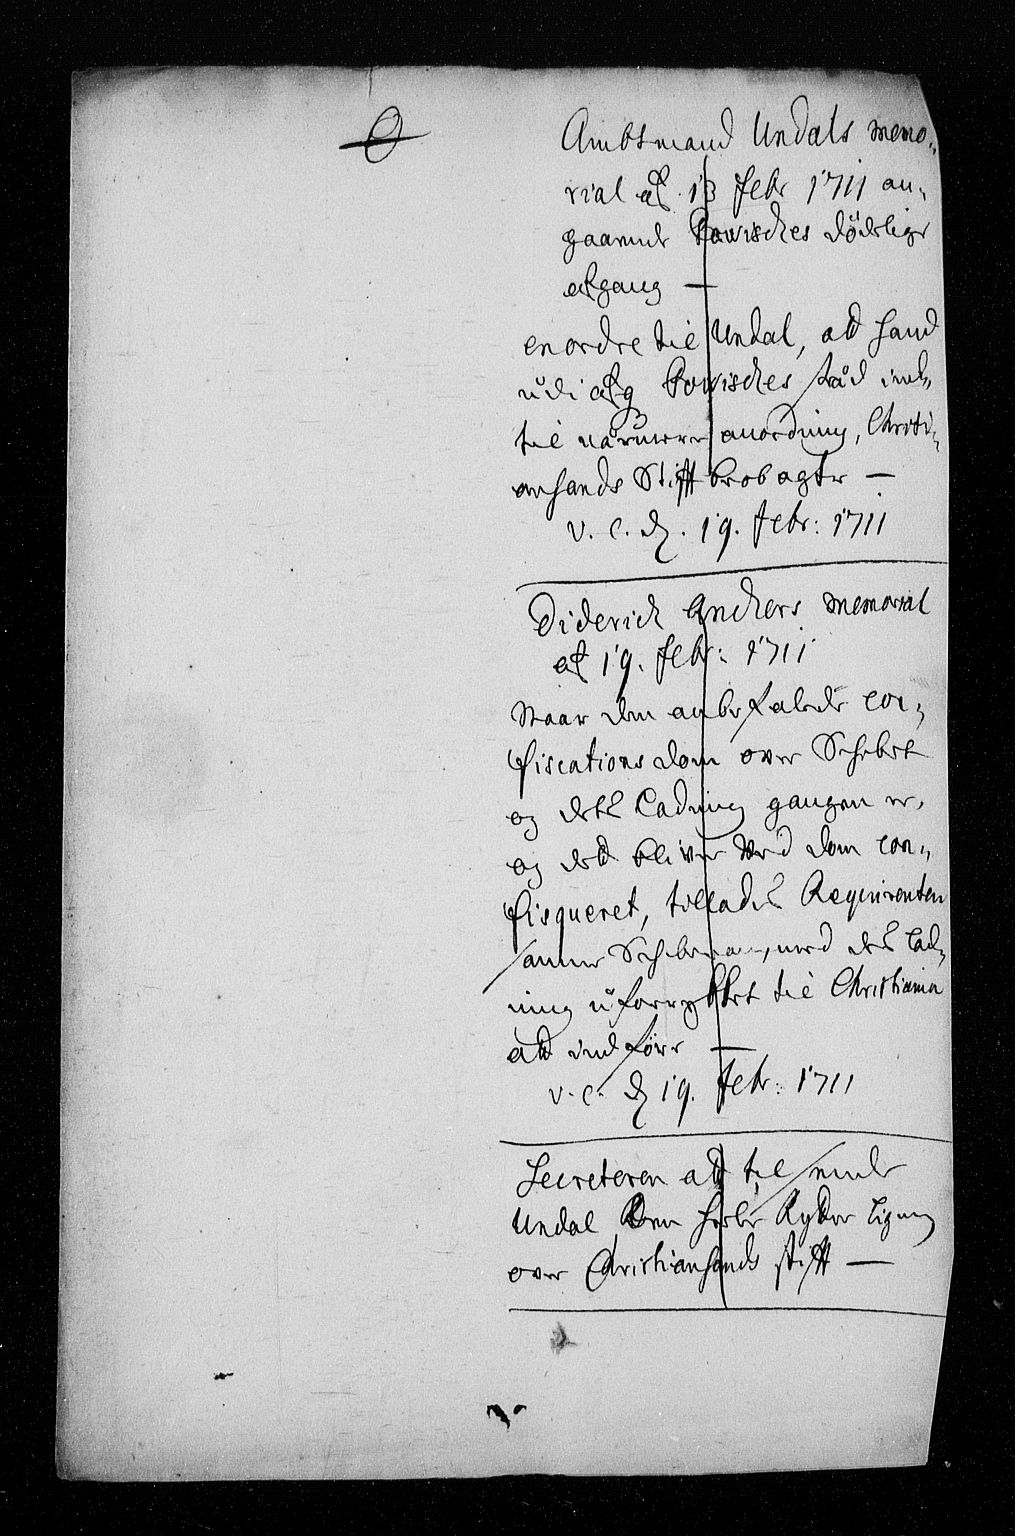 Ambtmand Undals memo-
rial af 13 Febr 1711 an-
gaaende Powisches dödelige
afgang —
en ordre til Undal, att hand
udi afg Powisches stæd ind-
til nærmere anordning, Christi-
ansands Stifft beobagter —
v. c. d. 19. Febr: 1711
Diderich Anckers memorial
af 19. Febr: 1711
Naar den anbefalede con-
fiscations dom over Schibet
og dets Ladning gangen er,
og det bliver ved dom con-
fisqueret, tillades Requirenten
samme Schib med des Lad-
ning uforrykket til Christiania
att indføre —
v. c. d 19. Febr: 1711
Secreteren att tilsende
Undal Den Rytter Ligning
over Christiansands stifft —